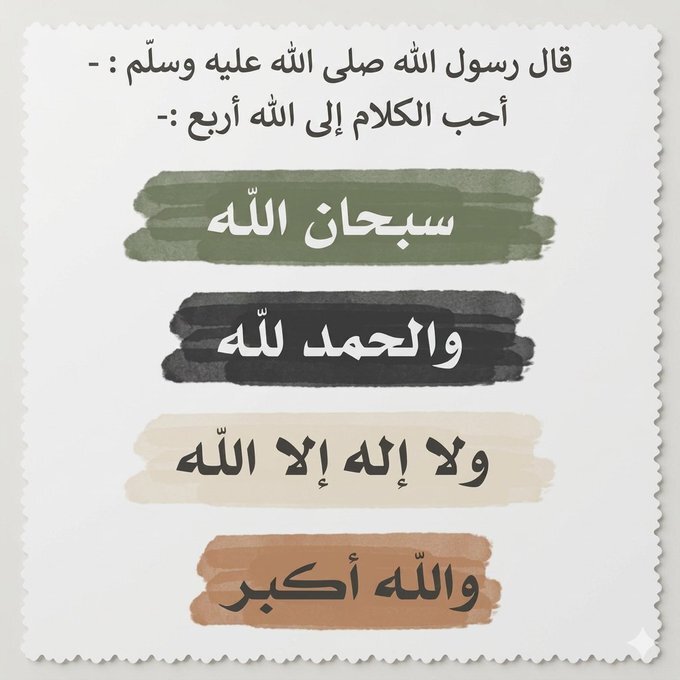 قال رسول الله صلى الله عليه وسلّم : -
أحب الكلام إلى الله أربع :-
سبحان اللّه
والحمد للّه
ولا إله إلا اللّه
واللّه أكبر